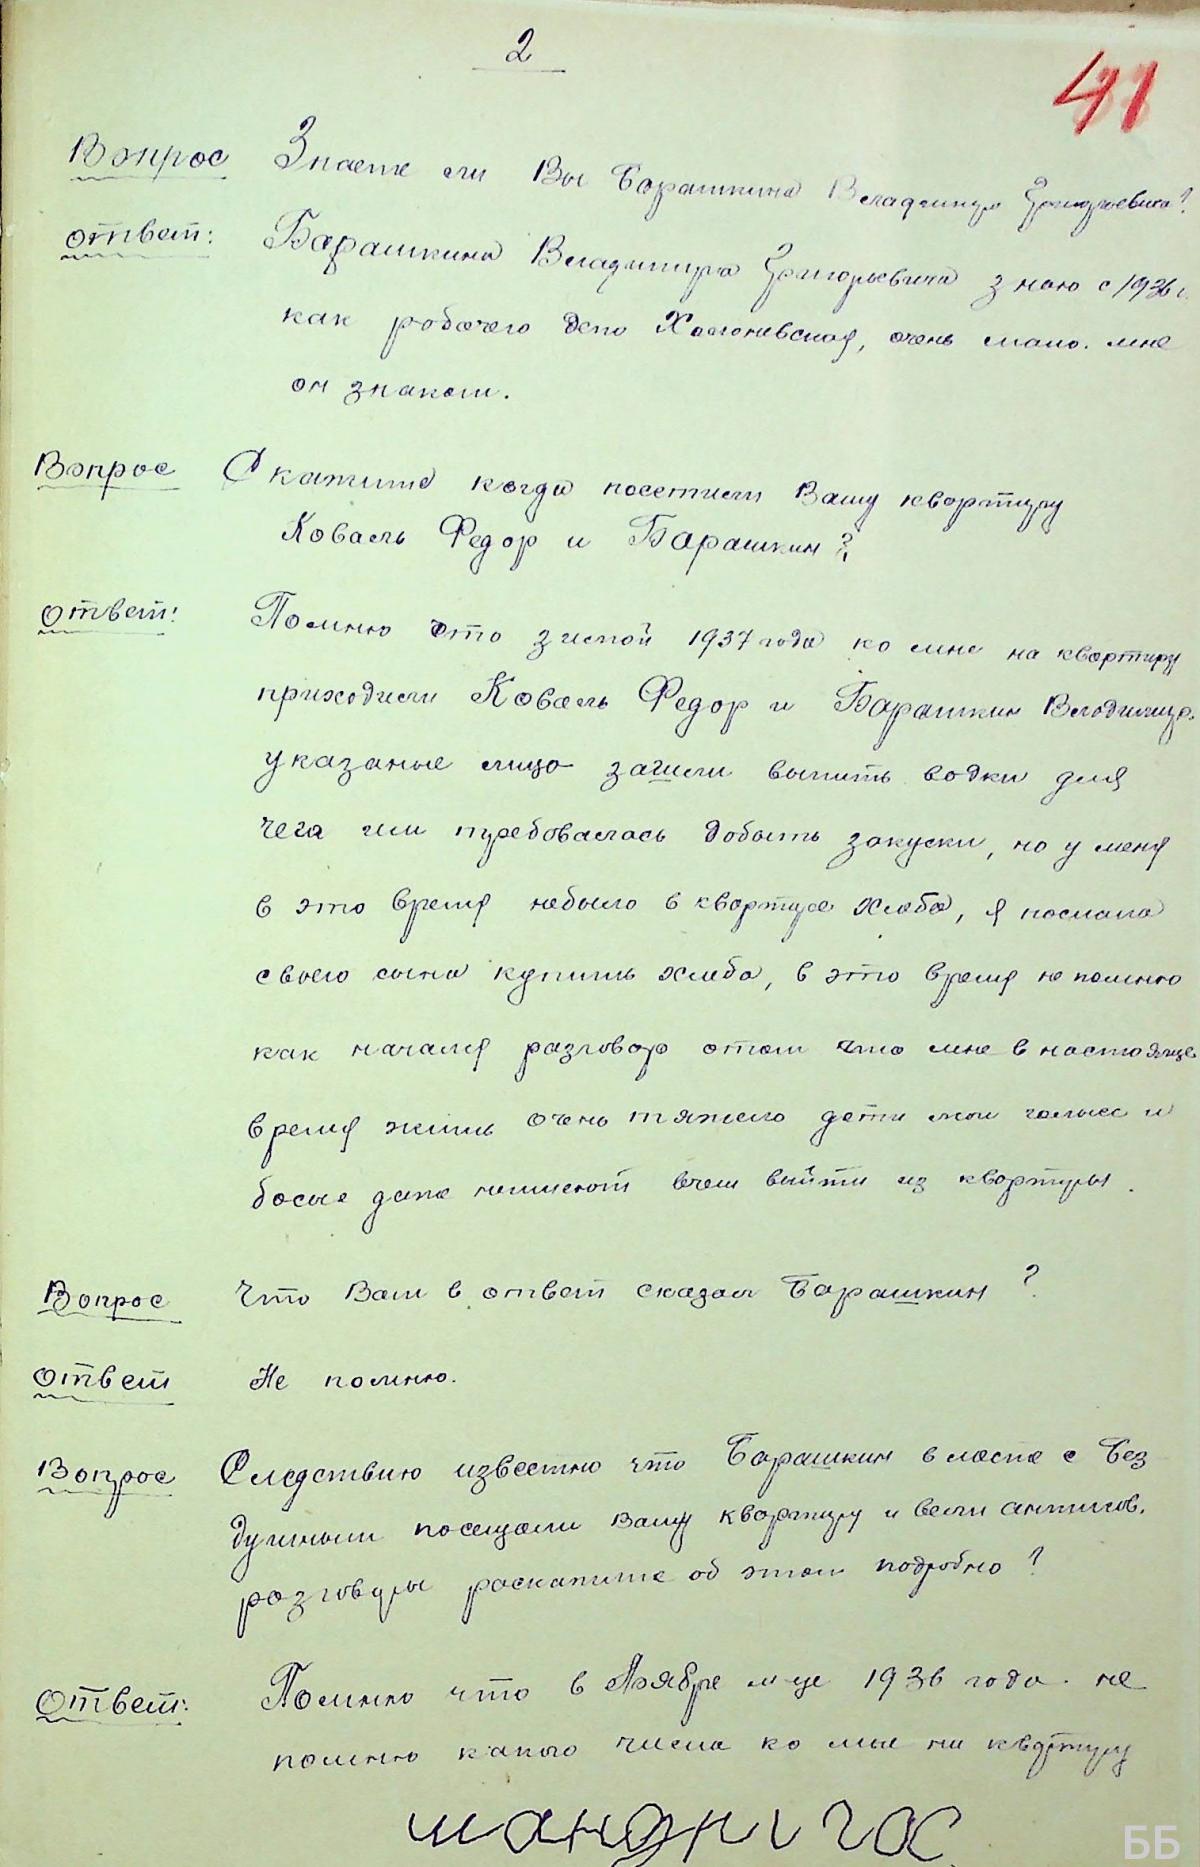 2
41
Вопрос Знаете ли Вы Барашкина Владимира Григорьевича?
Ответ: Барашкина Владимира Григорьевича знаю с 1936 г.
как рабочего депо Холоневская, очень мало. мне
он знаком.
Вопрос Скажите когда посетили Вашу квартиру
Коваль Федор и Барашкин?
Ответ: Помню что зимой 1937 года ко мне на квартиру
приходили Коваль Федор и Барашкин Владимир.
указаные лица зашли выпить водки для
чего им требовалась добыть закуски, но у меня
в это время небыло в квартире хлеба, я послала
своего сына купить хлеба, в это время не помню
как начался разговор отом что мне в настоящее
время жить очень тяжело дети мои голые и
босые даже неимеют вчем выйти из квартиры.
Вопрос Что Вам в ответ сказал Барашкин?
Ответ Не помню.
Вопрос Следствию известно что Барашкин вместе с Без
думным посещали Вашу квартиру и вели антисов.
разговоры раскажите об этом подробно?
Ответ: Помню что в Ноябре м-це 1936 года не
помню какого числа ко мне на квартиру
ББ